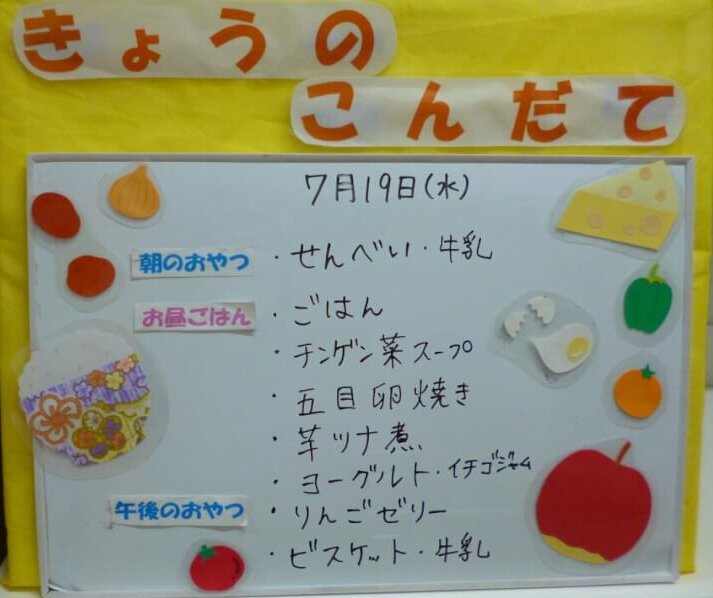 きょうの
こんだて
7月19日(水)
朝のおやつ ・せんべい・牛乳
お昼ごはん ・ごはん
・チンゲン菜スープ
・五目卵焼き
・芋ツナ煮
・ヨーグルト・イチゴジャム
午後のおやつ ・りんごゼリー
・ビスケット・牛乳